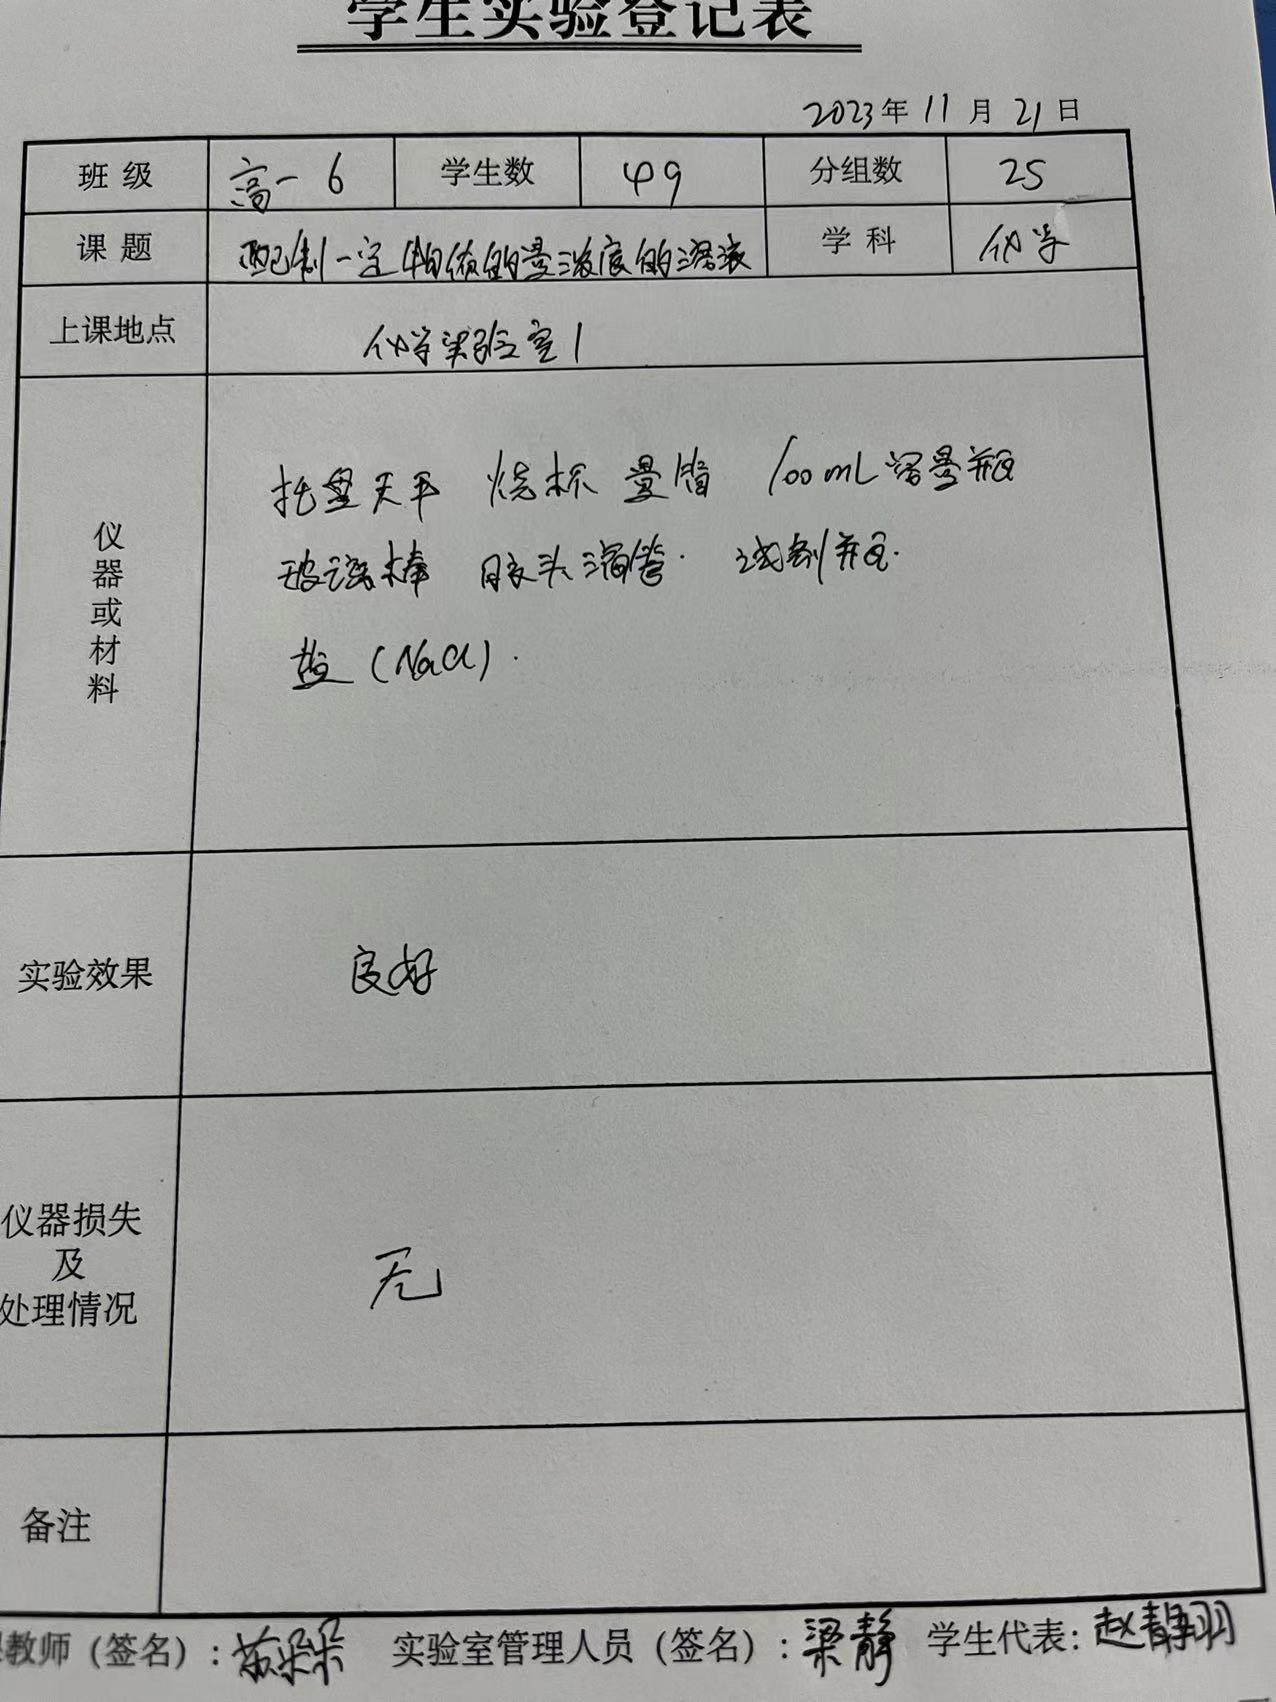 学生实验登记表
2023年 11月 21日
班级 高一6 学生数 49 分组数 25
课题 配制一定物质的量浓度的溶液 学科 化学
上课地点 化学实验室1
仪器或材料
托盘天平 烧杯 量筒 100mL容量瓶
玻璃棒 胶头滴管. 试剂瓶.
盐(NaCl).
实验效果 良好
仪器损失
及
处理情况
无
备注
课教师(签名): 实验室管理人员(签名):梁静 学生代表:赵静羽